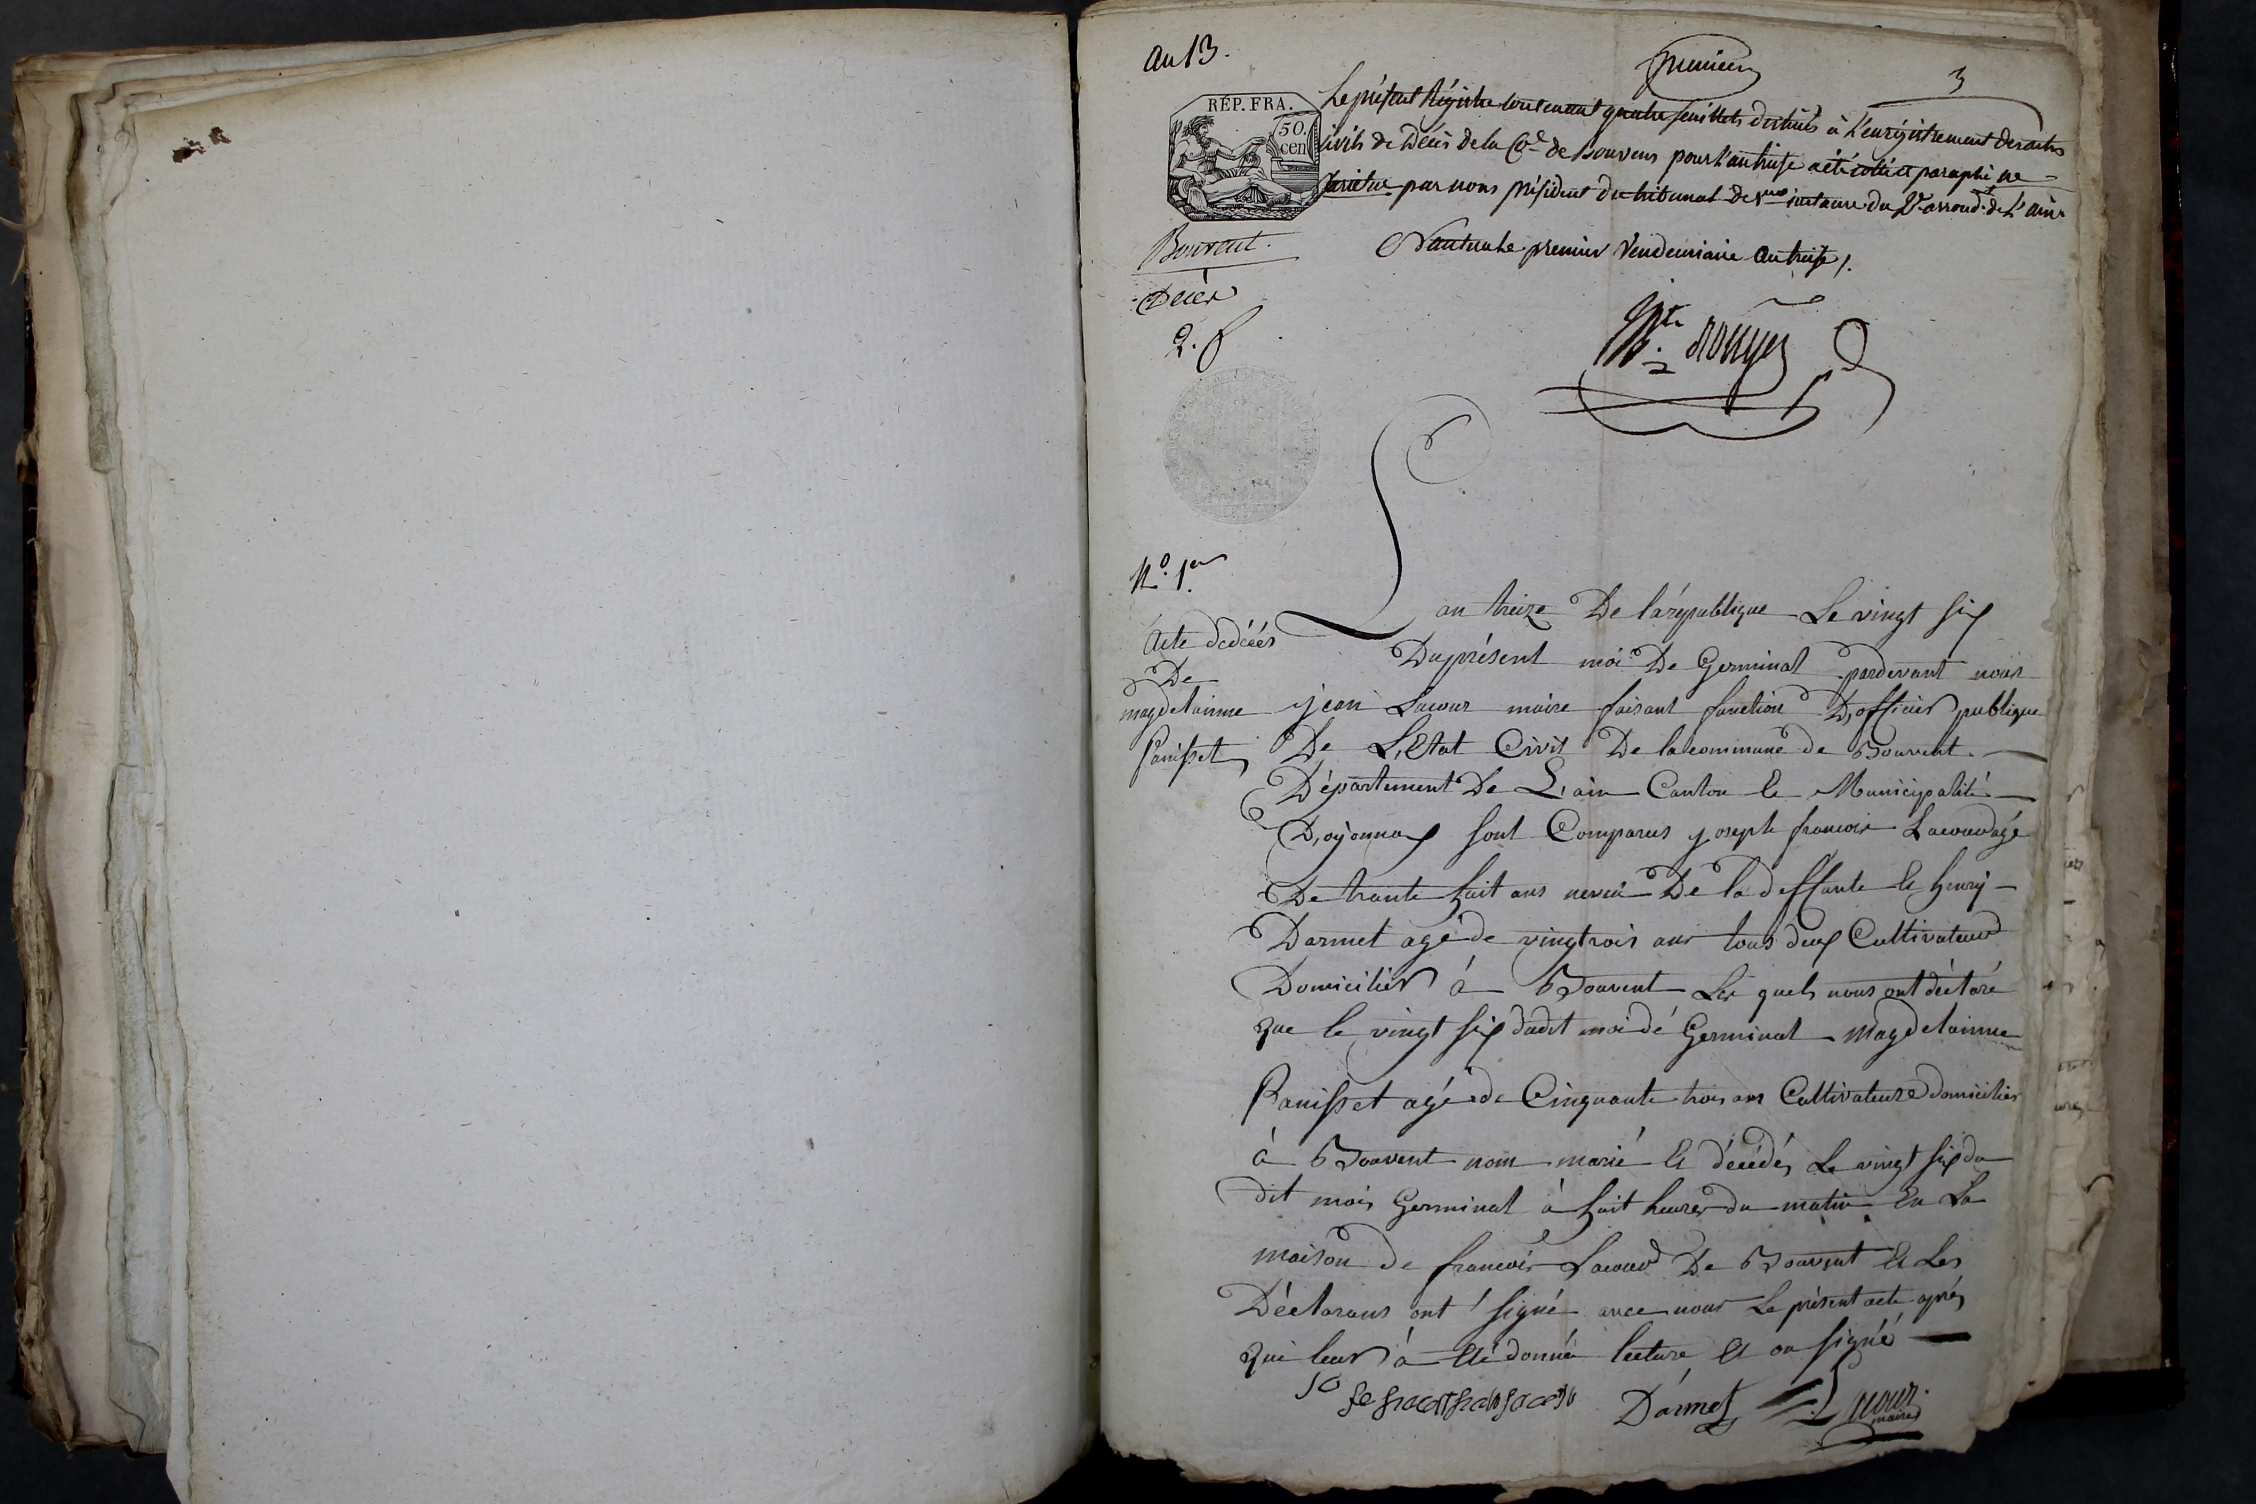 an 13.
premier
3
RÉP. FRA.
50.
cen
Le présent Régistre contenant quatre feuillets destinés à l'enrégistrement des actes
civils de Décès de la Cne de Bouvens pour l'an treize a été cotté et paraphé ne
varietur par nous président du tribunal de 1ere instance du 2e arrond.t de l'ain.
Nantua le premier Vendemiaire an treize /.
Bouvent.
Decès
2. f
Rouyer
N.o 1.er
Acte dedécés
De
magdelainne
Panisset
L
an treize De larépublique Le vingt six
Duprésent moi De Germinal pardevant nous
jean Lacour maire faisant fonction D,officier publique
De L,Etat Civil De lacommune de Bouvent.
Département De L,ain Canton Et Municipalité
D,oyonnax sont Comparus joseph francois Lacour agé
De trante huit ans neveu De la deffunte Et henry
Darmet agé de vingtrois ans tous deux Cultivateurs
Domiciliér à Bouvent Les quels nous ont déclaré
que le vingt six dudit moi dé Germinal magdelainne
Panisset agé de Cinquante trois ans Cultivateure domicilier
à Bouvent nom marié Et décédés Le vingt six du
dit mois Germinal à huit heures du matin En La
maison de francois Lacour De Bouvent Et Les
Déclarans ont signé avec nous Le présent acte aprés
qui leur à Eté donnéé lecture Et on signé
Darmet
Lacour.
maire